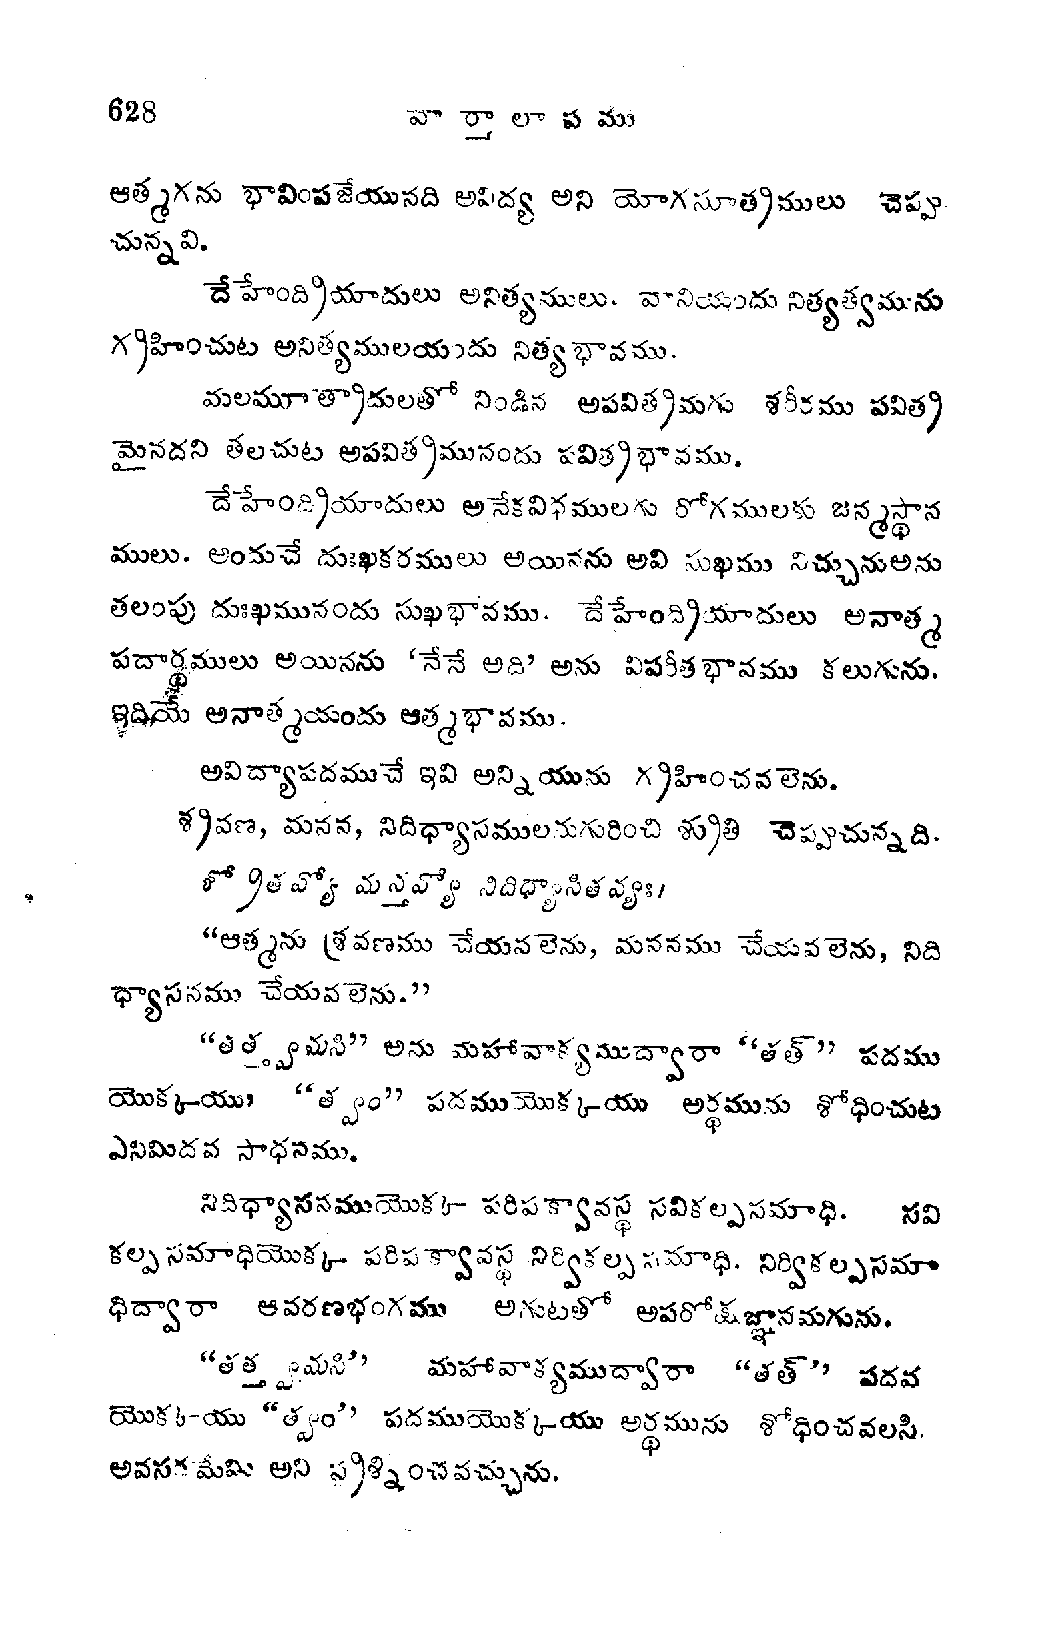 628
వా ర్తా లా ప ము
ఆత్మగను భావింపజేయునది అవిద్య అని యోగసూత్రములు చెప్పు
చున్నవి.
దేహేంద్రియాదులు అనిత్యములు. వానియందు నిత్యత్వమును
గ్రహించుట అనిత్యములయందు నిత్యభావము.
మలమూత్రాదులతో నిండిన అపవిత్రమగు శరీరము పవిత్ర
మైనదని తలచుట అపవిత్రమునందు పవిత్రభావము.
దేహేంద్రియాదులు అనేకవిధములగు రోగములకు జన్మస్థాన
ములు. అందుచే దుఃఖకరములు అయినను అవి సుఖము నిచ్చునుఅను
తలంపు దుఃఖమునందు సుఖభావము. దేహేంద్రియాదులు అనాత్మ
పదార్థములు అయినను ‘నేనే అది’ అను విపరీతభావము కలుగును.
ఇదియే అనాత్మయందు ఆత్మభావము.
అవిద్యాపదముచే ఇవి అన్నియును గ్రహించవలెను.
శ్రవణ, మనన, నిదిధ్యాసములనుగురించి శ్రుతి చెప్పుచున్నది.
శ్రోతవ్యో మన్తవ్యో నిదిధ్యాసితవ్యః।
“ఆత్మను శ్రవణము చేయవలెను, మననము చేయవలెను, నిది
ధ్యాసనము చేయవలెను.”
“తత్త్వమసి” అను మహావాక్యముద్వారా “తత్” పదము
యొక్కయు, “త్వం” పదముయొక్కయు అర్థమును శోధించుట
ఎనిమిదవ సాధనము.
నిదిధ్యాసనముయొక్క పరిపక్వావస్థ సవికల్పసమాధి. సవి
కల్పసమాధియొక్క పరిపక్వావస్థ నిర్వికల్పసమాధి. నిర్వికల్పసమా
ధిద్వారా ఆవరణభంగము అగుటతో అపరోక్షజ్ఞానమగును.
“తత్త్వమసి” మహావాక్యముద్వారా “తత్” పదవ
యొక్క-యు “త్వం” పదముయొక్కయు అర్థమును శోధించవలసి.
అవసరమేమి అని ప్రశ్నించవచ్చును.